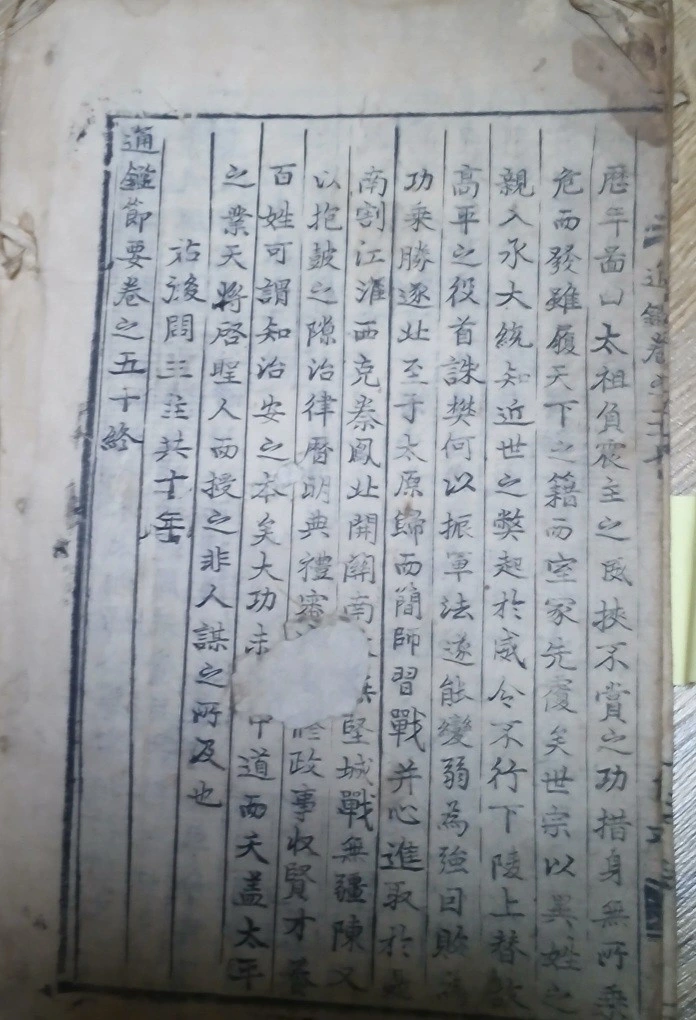 通鑑卷之五十
歷年啚曰太祖負震主之威挾不賞之功措身無所乗
危而發雖履天下之籍而室家先覆矣世宗以異姓之
親入承大統知近世之弊起於威令不行下陵上替故
高平之役首誅樊何以振軍法遂能變弱為強因敗為
功乗勝逐北至于太原歸而簡師習戰并心進取於是
南割江淮西克秦鳳北開關南 堅城戰無疆陳又
以抱皷之隙治律曆明典禮審 修政事収賢才養
百姓可謂知治安之本矣大功未 中道而夭盖太平
之業天將啓聖人而授之非人謀之所及也
右後周三主共十年
通鑑節要卷之五十終